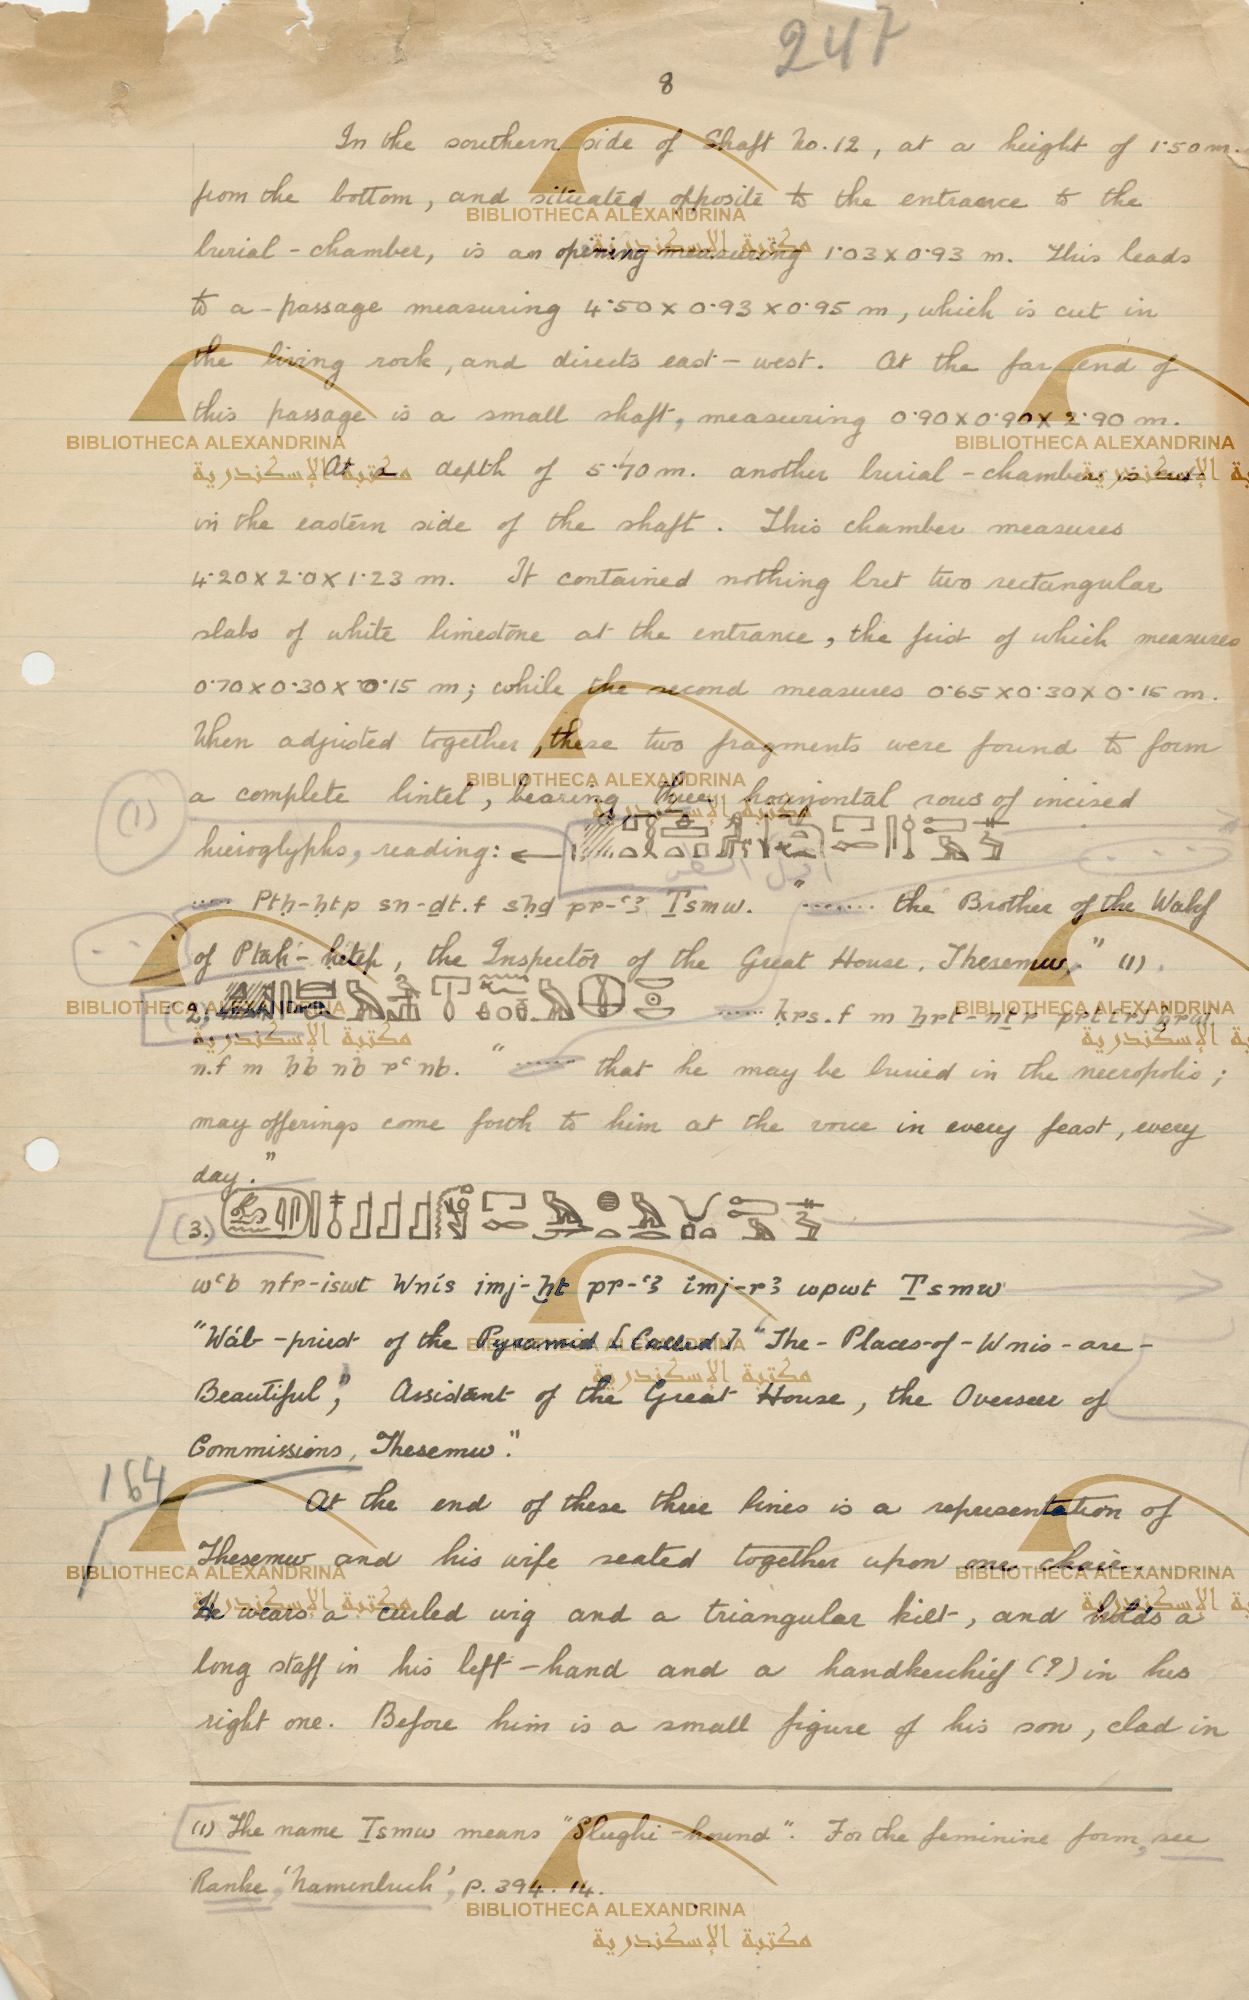 247
8
In the southern side of Shaft No. 12, at a height of 1·50 m.
from the bottom, and situated opposite to the entrance to the
burial-chamber, is an opining measuring 1·03 x 0·93 m. This leads
to a passage measuring 4·50 x 0·93 x 0·95 m, which is cut in
the living rock, and directs east-west. At the far end of
this passage is a small shaft, measuring 0·90 x 0·90 x 2·90 m.
At a depth of 5·70 m. another burial-chamber is cut
in the eastern side of the shaft. This chamber measures
4·20 x 2·0 x 1·23 m. It contained nothing but two rectangular
slabs of white limestone at the entrance, the first of which measures
0·70 x 0·30 x 0·15 m; while the second measures 0·65 x 0·30 x 0·15 m.
When adjusted together, these two fragments were found to form
a complete lintel, bearing three horizontal rows of incised
(1)
hieroglyphs, reading: ←
..... Ptḥ-ḥtp sn-ḏt.f sḥḏ pr-ꜥꜣ Ṯsmw. "....... the Brother of the Wakf
of Ptah-hetep, the Inspector of the Great House, Thesemw." (1).
2.
...... ḳrs.f m ẖrt-nṯr prt [r] ḫrw
n.f m ḥb nb rꜥ nb. "....... that he may be buried in the necropolis;
may offerings come forth to him at the voice in every feast, every
day."
3.
wꜥb nfr-iswt Wnis imj-ḫt pr-ꜥꜣ imj-rꜣ wpwt Ṯsmw
"Wáb-priest of the Pyramid [Called] "The-Places-of-Wnis-are-
Beautiful", Assistant of the Great House, the Overseer of
Commissions, Thesemw."
164
At the end of these three lines is a representation of
Thesemw and his wife seated together upon one chair.
He wears a curled wig and a triangular kilt, and holds a
long staff in his left-hand and a handkerchief (?) in his
right one. Before him is a small figure of his son, clad in
(1) The name Ṯsmw means "Slughi-hound". For the feminine form, see
Ranke, 'Namenbuch', p. 394. 14.
BIBLIOTHECA ALEXANDRINA
مكتبة الإسكندرية